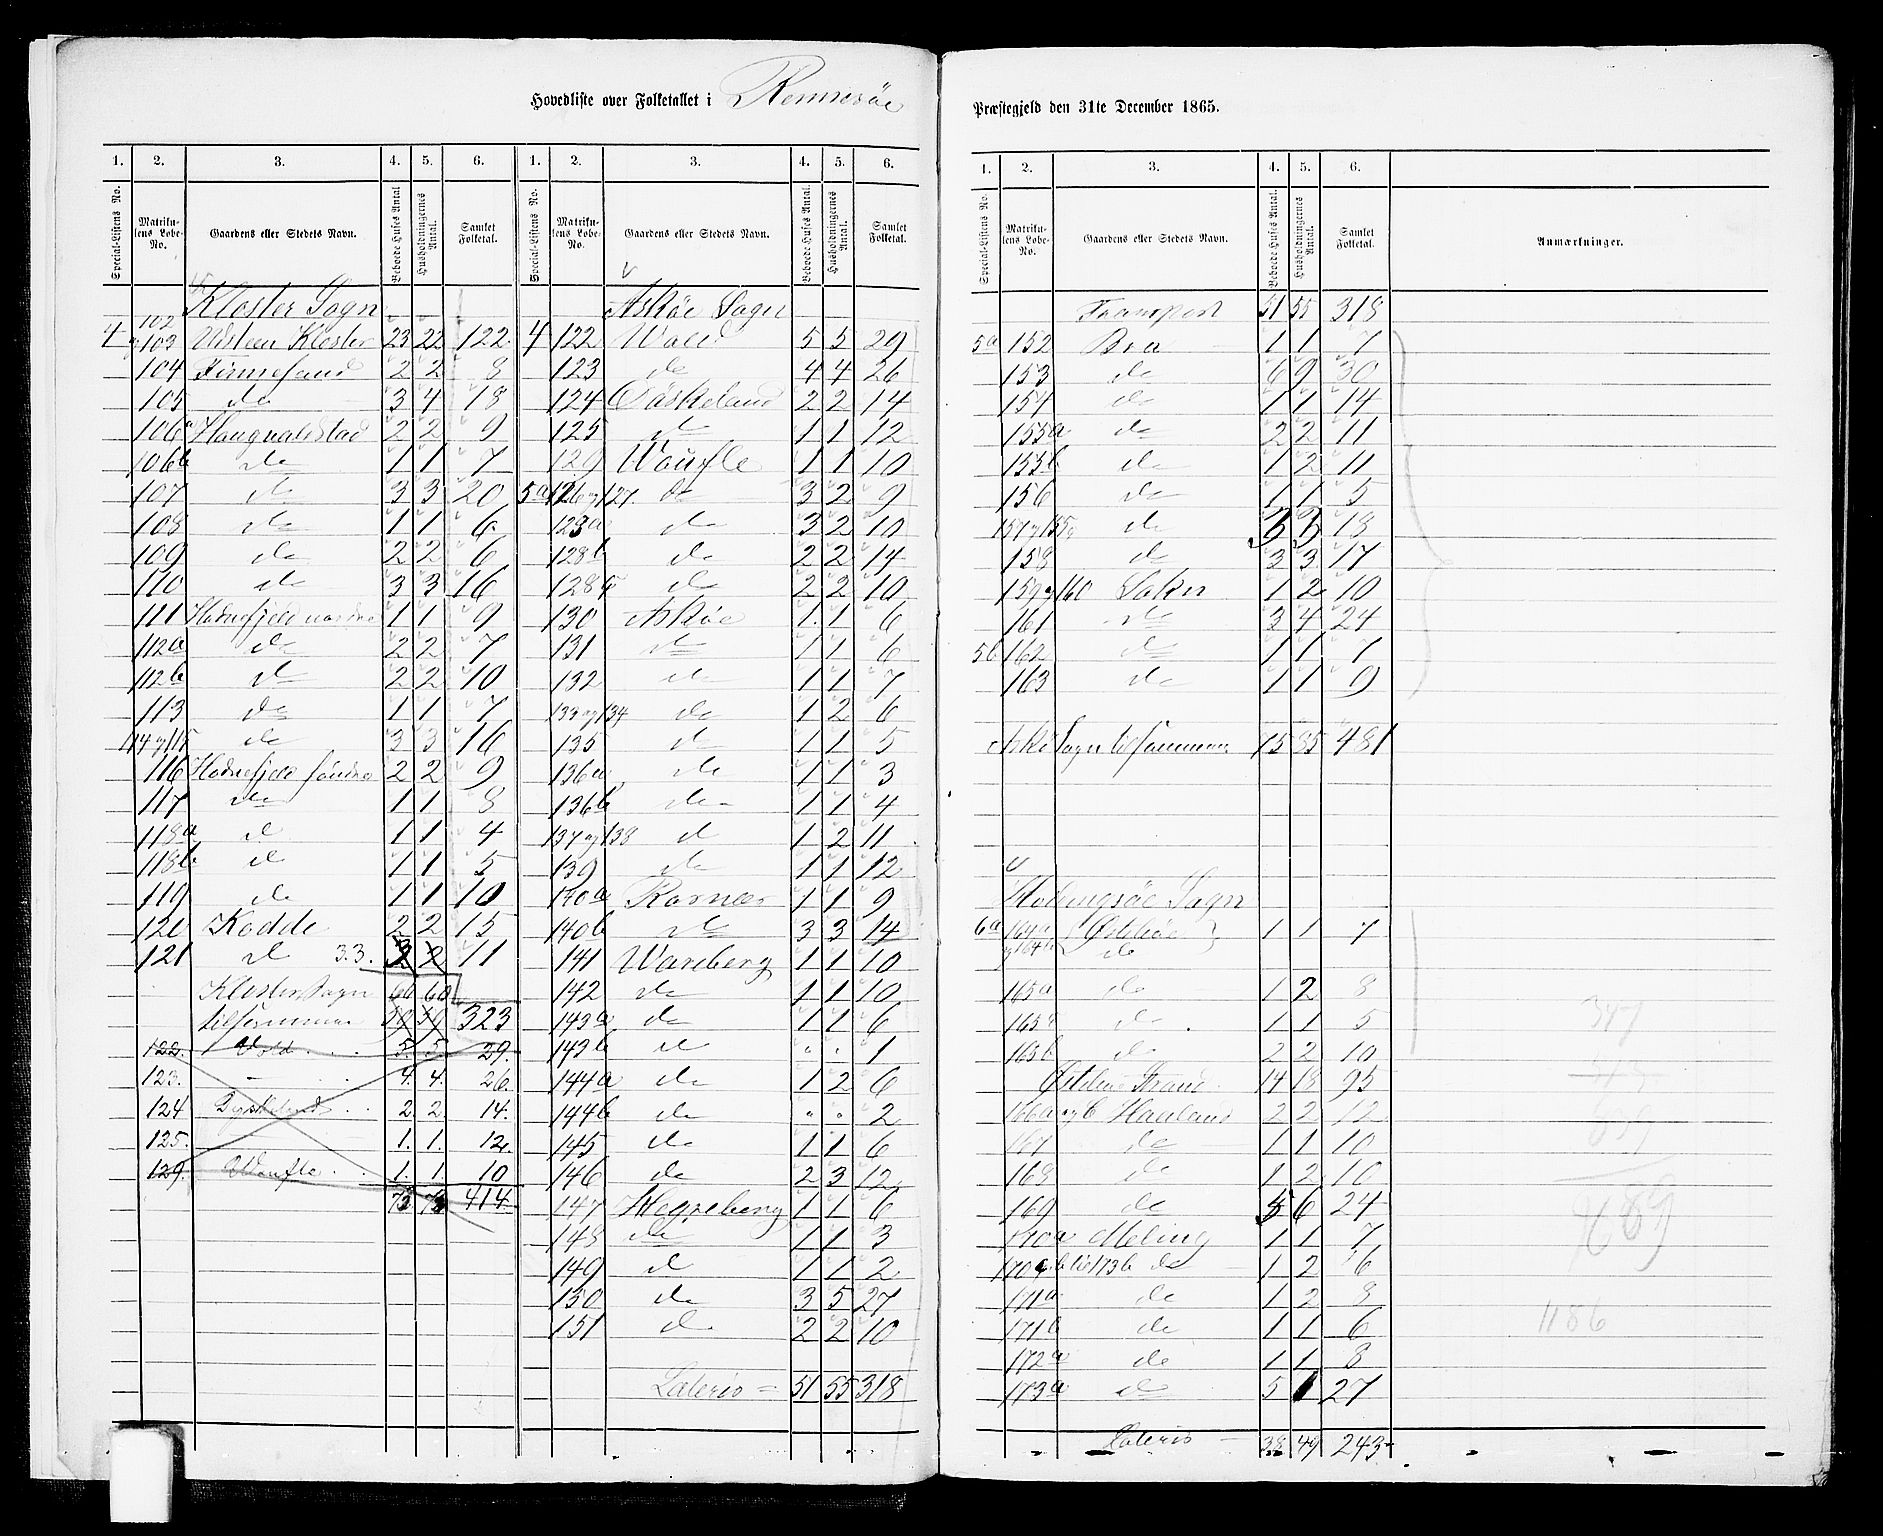 Hovedliste over Folketallet i Rennesøe
1. 2. 3. 4. 5. 6. 1. 2. 3. 4. 5. 6.
Special-Listens No. Matrikulens Løbe-No. Gaardens eller Stedets Navn. Beboede Huses Antal Husholdningernes Antal. Samlet Folketal. Special-Listens No. Matrikulens Løbe-No. Gaardens eller Stedets Navn. Beboede Huses Antal. Husholdningernes Antal. Samlet Folketal.
Kloster Sogn
4 102 og 103 Utsteen Kloster 23 22 122
104 Finnesand 2 2 8
105 do 3 4 18
106a Haugvaldstad 2 2 9
106b do 1 1 7
107 do 3 3 20
108 do 1 1 6
109 do 2 2 6
110 do 3 3 16
111 Hodnefjeld nordre 1 1 9
112a do 2 2 7
112b do 2 2 10
113 do 1 1 7
114 og 115 do 3 3 16
116 Hodnefjeld søndre 2 2 9
117 do 1 1 8
118a do 1 1 4
118b do 1 1 5
119 do 1 1 10
120 Kodde 2 2 15
121 do 3.3. 11
Kloster Sogn 60 60
tilsammen 59 59 323
122. Vold 5. 5. 29.
123. - 4. 4. 26.
124 Dyskeland 2. 2. 14.
125. 1. 1. 12.
129. Woufle 1. 1. 10
73 73 414
Askøe Sogn
4 122 Wold 5 5 29
123 do 4 4 26
124 Døskeland 2 2 14
125 do 1 1 12
129 Woufle 1 1 10
5a 126 og 127. do 3 2 9
128a do 3 2 10
128b do 2 2 14
128c do 2 2 10
130 Askøe 1 1 6
131 do 1 1 6
132 do 1 1 7
133 og 134 do 1 2 6
135 do 1 1 5
136a do 1 1 3
136b do 1 1 4
137 og 138 do 1 2 11
139 do 1 1 12
140a Ramnes 1 1 9
140b do 3 3 14
141 Wareberg 1 1 10
142 do 1 1 10
143a do 1 1 6
143b do " " 1
144a do 1 2 6
144b do " " 2
145 do 1 1 6
146 do 2 3 12
147 Hegreberg 1 1 6
148 do 1 1 3
149 do 1 1 2
150 do 3 5 27
151 do 2 2 10
Lateris = 51 55 318
Præstegjeld den 31te December 1865.
1. 2. 3. 4. 5. 6.
Special-Listens No. Matrikulens Løbe-No. Gaardens eller Stedets Navn. Beboede Huses Antal. Husholdningernes Antal. Samlet Folketal. Anmærkninger.
Transport 51 55 318
5a 152 Bra 1 1 7
153 do 6 9 30
154 do 1 1 14
155a do 2 2 11
155b do 1 2 11
156 do 1 1 5
157 og 155 do 3 3 18
158 do 3 3 17
159 og 160 Sokn 1 2 10
161 do 3 4 24
5b 162 do 1 1 7
163 do 1 1 9
Askø Sogn tilsammen 75 85 481
6a 164a og 164b Østhus 1 1 7
do
165a do 1 2 8
do 1 1 5
165b do 2 2 10
Strand. 14 18 95
166a og b Hauland 2 2 12
167 do 1 1 10
168 do 1 2 10
169 do 5 6 24
170a Meling 1 1 7
do 1 2 6
171a do 1 2 8
171b do 1 1 6
172a do 1 1 8
173a do 5 27
Lateris 38 49 243
1186